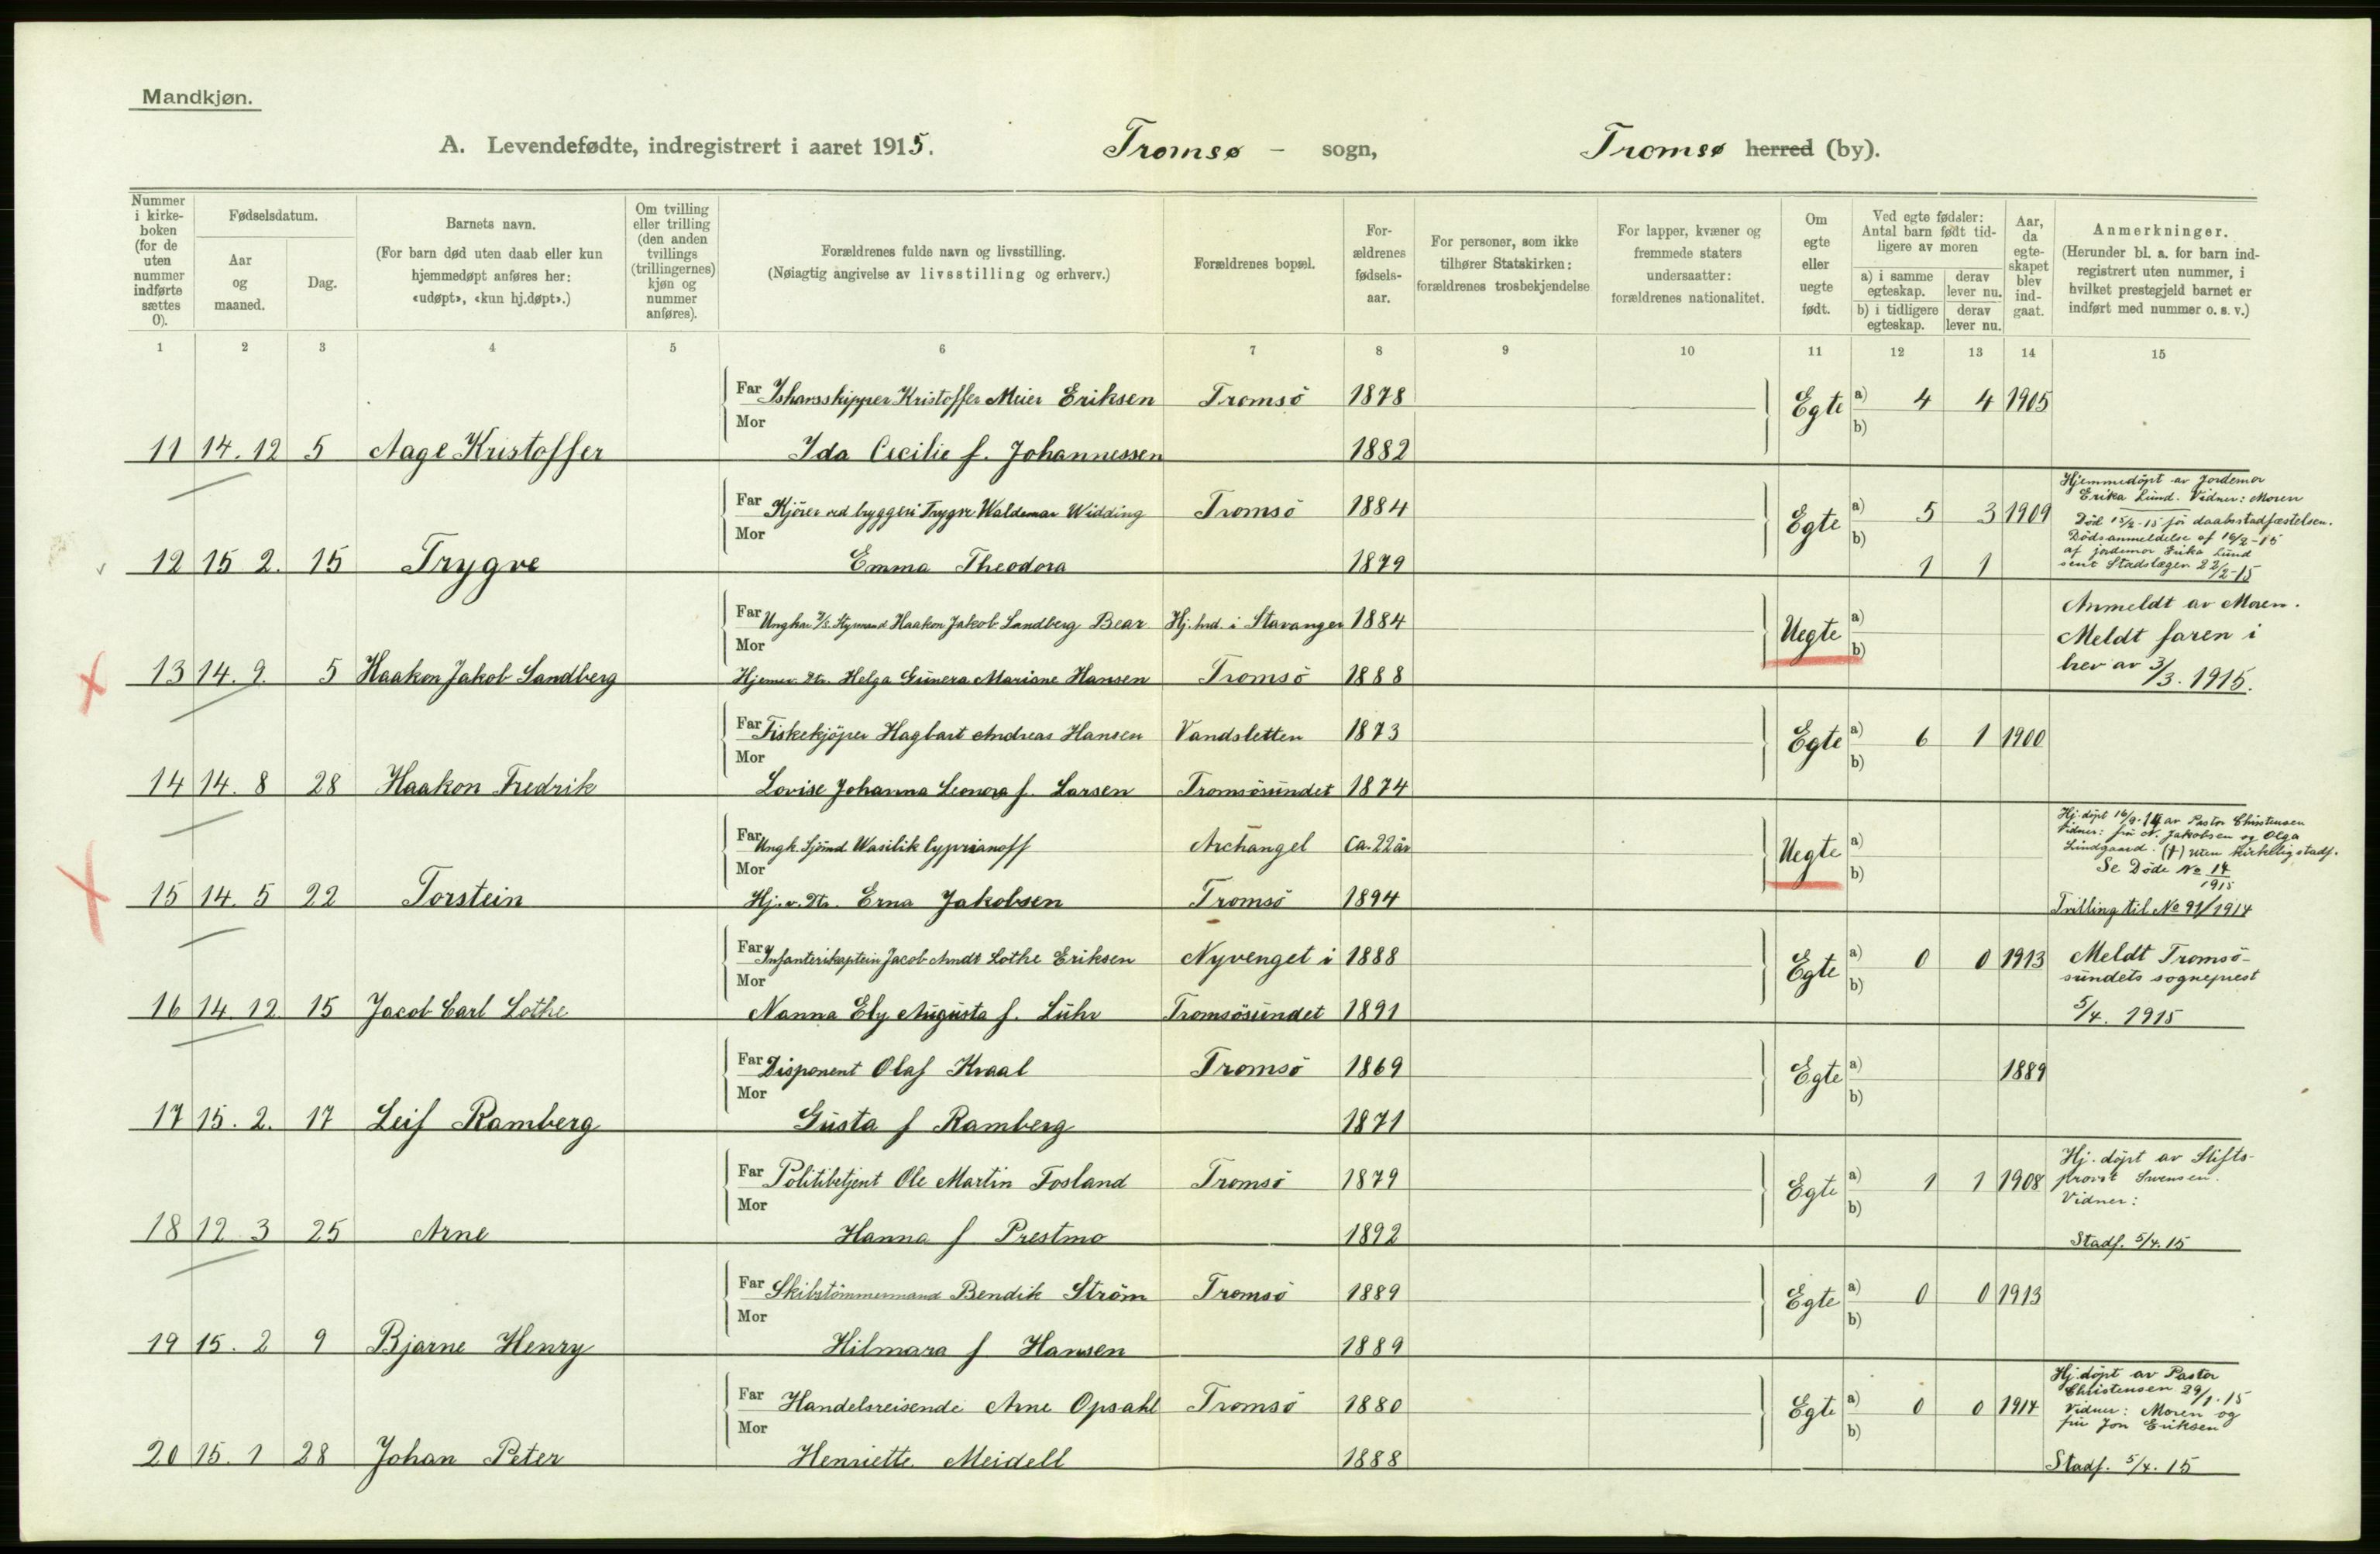 Mandkjøn.
A. Levendefødte, indregistrert i aaret 1915. Tromsø - sogn, Tromsø herred (by).
Nummer i kirke-boken (for de uten nummer indførte sættes 0).
Fødselsdatum.
Aar og maaned.
Dag.
Barnets navn.
(For barn død uten daab eller kun hjemmedøpt anføres her: «udøpt», «kun hj.døpt».)
Om tvilling eller trilling (den anden tvillings (trillingernes) kjøn og nummer anføres).
Forældrenes fulde navn og livsstilling.
(Nøiagtig angivelse av livsstilling og erhverv.)
Forældrenes bopæl.
For-ældrenes fødsels-aar.
For personer, som ikke tilhører Statskirken: forældrenes trosbekjendelse
For lapper, kvæner og fremmede staters undersaatter: forældrenes nationalitet.
Om egte eller uegte født.
Ved egte fødsler: Antal barn født tid-ligere av moren
a) i samme egteskap.
derav lever nu.
b) i tidligere egteskap.
derav lever nu.
Aar, da egte-skapet blev ind-gaat.
Anmerkninger.
(Herunder bl. a. for barn ind-registrert uten nummer, i hvilket prestegjeld barnet er indført med nummer o. s. v.)
1 2 3 4 5 6 7 8 9 10 11 12 13 14 15
Far Ishavsskipper Kristoffer Meier Eriksen Tromsö 1878 Egte a) 4 4 1905
Mor b)
11 14. 12 5 Aage Kristoffer Ida Cecilie f. Johannessen 1882
Hjemmedöpt av Jordemor
Erika Lund. Vidner: Moren
Far Kjörer ved bryggeri Trygve Waldemar Widding Tromsö 1884 Egte a) 5 3 1909
Död 15/2-15 før daabsstadfæstelsen.
Mor b)
Dödsanmeldelse af 16/2-15
af jordemor Erika Lund
12 15 2. 15 Trygve Emma Theodora 1879 1 1
sent Stadslægen 22/2-15
Far Ungkar Styrmand Haakon Jakob Sandberg Bear Hj. hrd. i Stavanger 1884 Uegte a) Anmeldt av Moren.
Mor b) Meldt faren i
13 14. 9. 5 Haakon Jakob Sandberg Hjemmev. Dtr. Helga Gunera Mariane Hansen Tromsö 1888 brev av 3/3. 1915.
Far Fiskekjöper Hagbart Andreas Hansen Vandsletten 1873 Egte a) 6 1 1900
Mor b)
14 14. 8 28 Haakon Fredrik Lovise Johanna Leonora f. Larsen Tromsösundet 1874
Hj. döpt 16/9-14 av Pastor Christensen
Vidner: fru N. Jakobsen og Olga
Far Ungk. Sjömd. Wasilik Cyprianoff Archangel Ca. 22 år Uegte a)
Lindgaard. (†) uten kirkelig stadf.
Mor b) Se Döde No 14/1915
15 14. 5 22 Torstein Hj. v. Dtr. Erna Jakobsen Tromsö 1894 Tvilling til No 91/1914
Far Infanterikaptein Jacob Arndt Lothe Eriksen Nyvenget i 1888 Egte a) 0 0 1913 Meldt Tromsö-
Mor b) sundets sogneprest
16 14. 12. 15 Jacob Carl Lothe Nanna Ely Augusta f. Lühr Tromsösundet 1891 5/4. 1915
Far Disponent Olaf Kraal Tromsö 1869 Egte a) 1889
Mor b)
17 15. 2. 17 Leif Ramberg Gusta f Ramberg 1871
Hj. döpt av Stifts-
Far Politibetjent Ole Martin Fosland Tromsö 1879 Egte a) 1 1 1908 provst Svensen.
Mor b) Vidner:
18 12 3 25 Arne Hanna f Prestmo 1892 Stadf. 5/4. 15
Far Skibstömmermand Bendik Ström Tromsö 1889 Egte a) 0 0 1913
Mor b)
19 15. 2 9 Bjarne Henry Hilmara f Hansen 1889
Hj. döpt av Pastor
Christensen 29/1. 15
Far Handelsreisende Arne Opsahl Tromsö 1880 Egte a) 0 0 1914 Vidner: Moren og
Mor b) fru Jon Eriksen
20 15. 1 28 Johan Peter Henriette Meidell 1888 Stadf. 5/4. 15